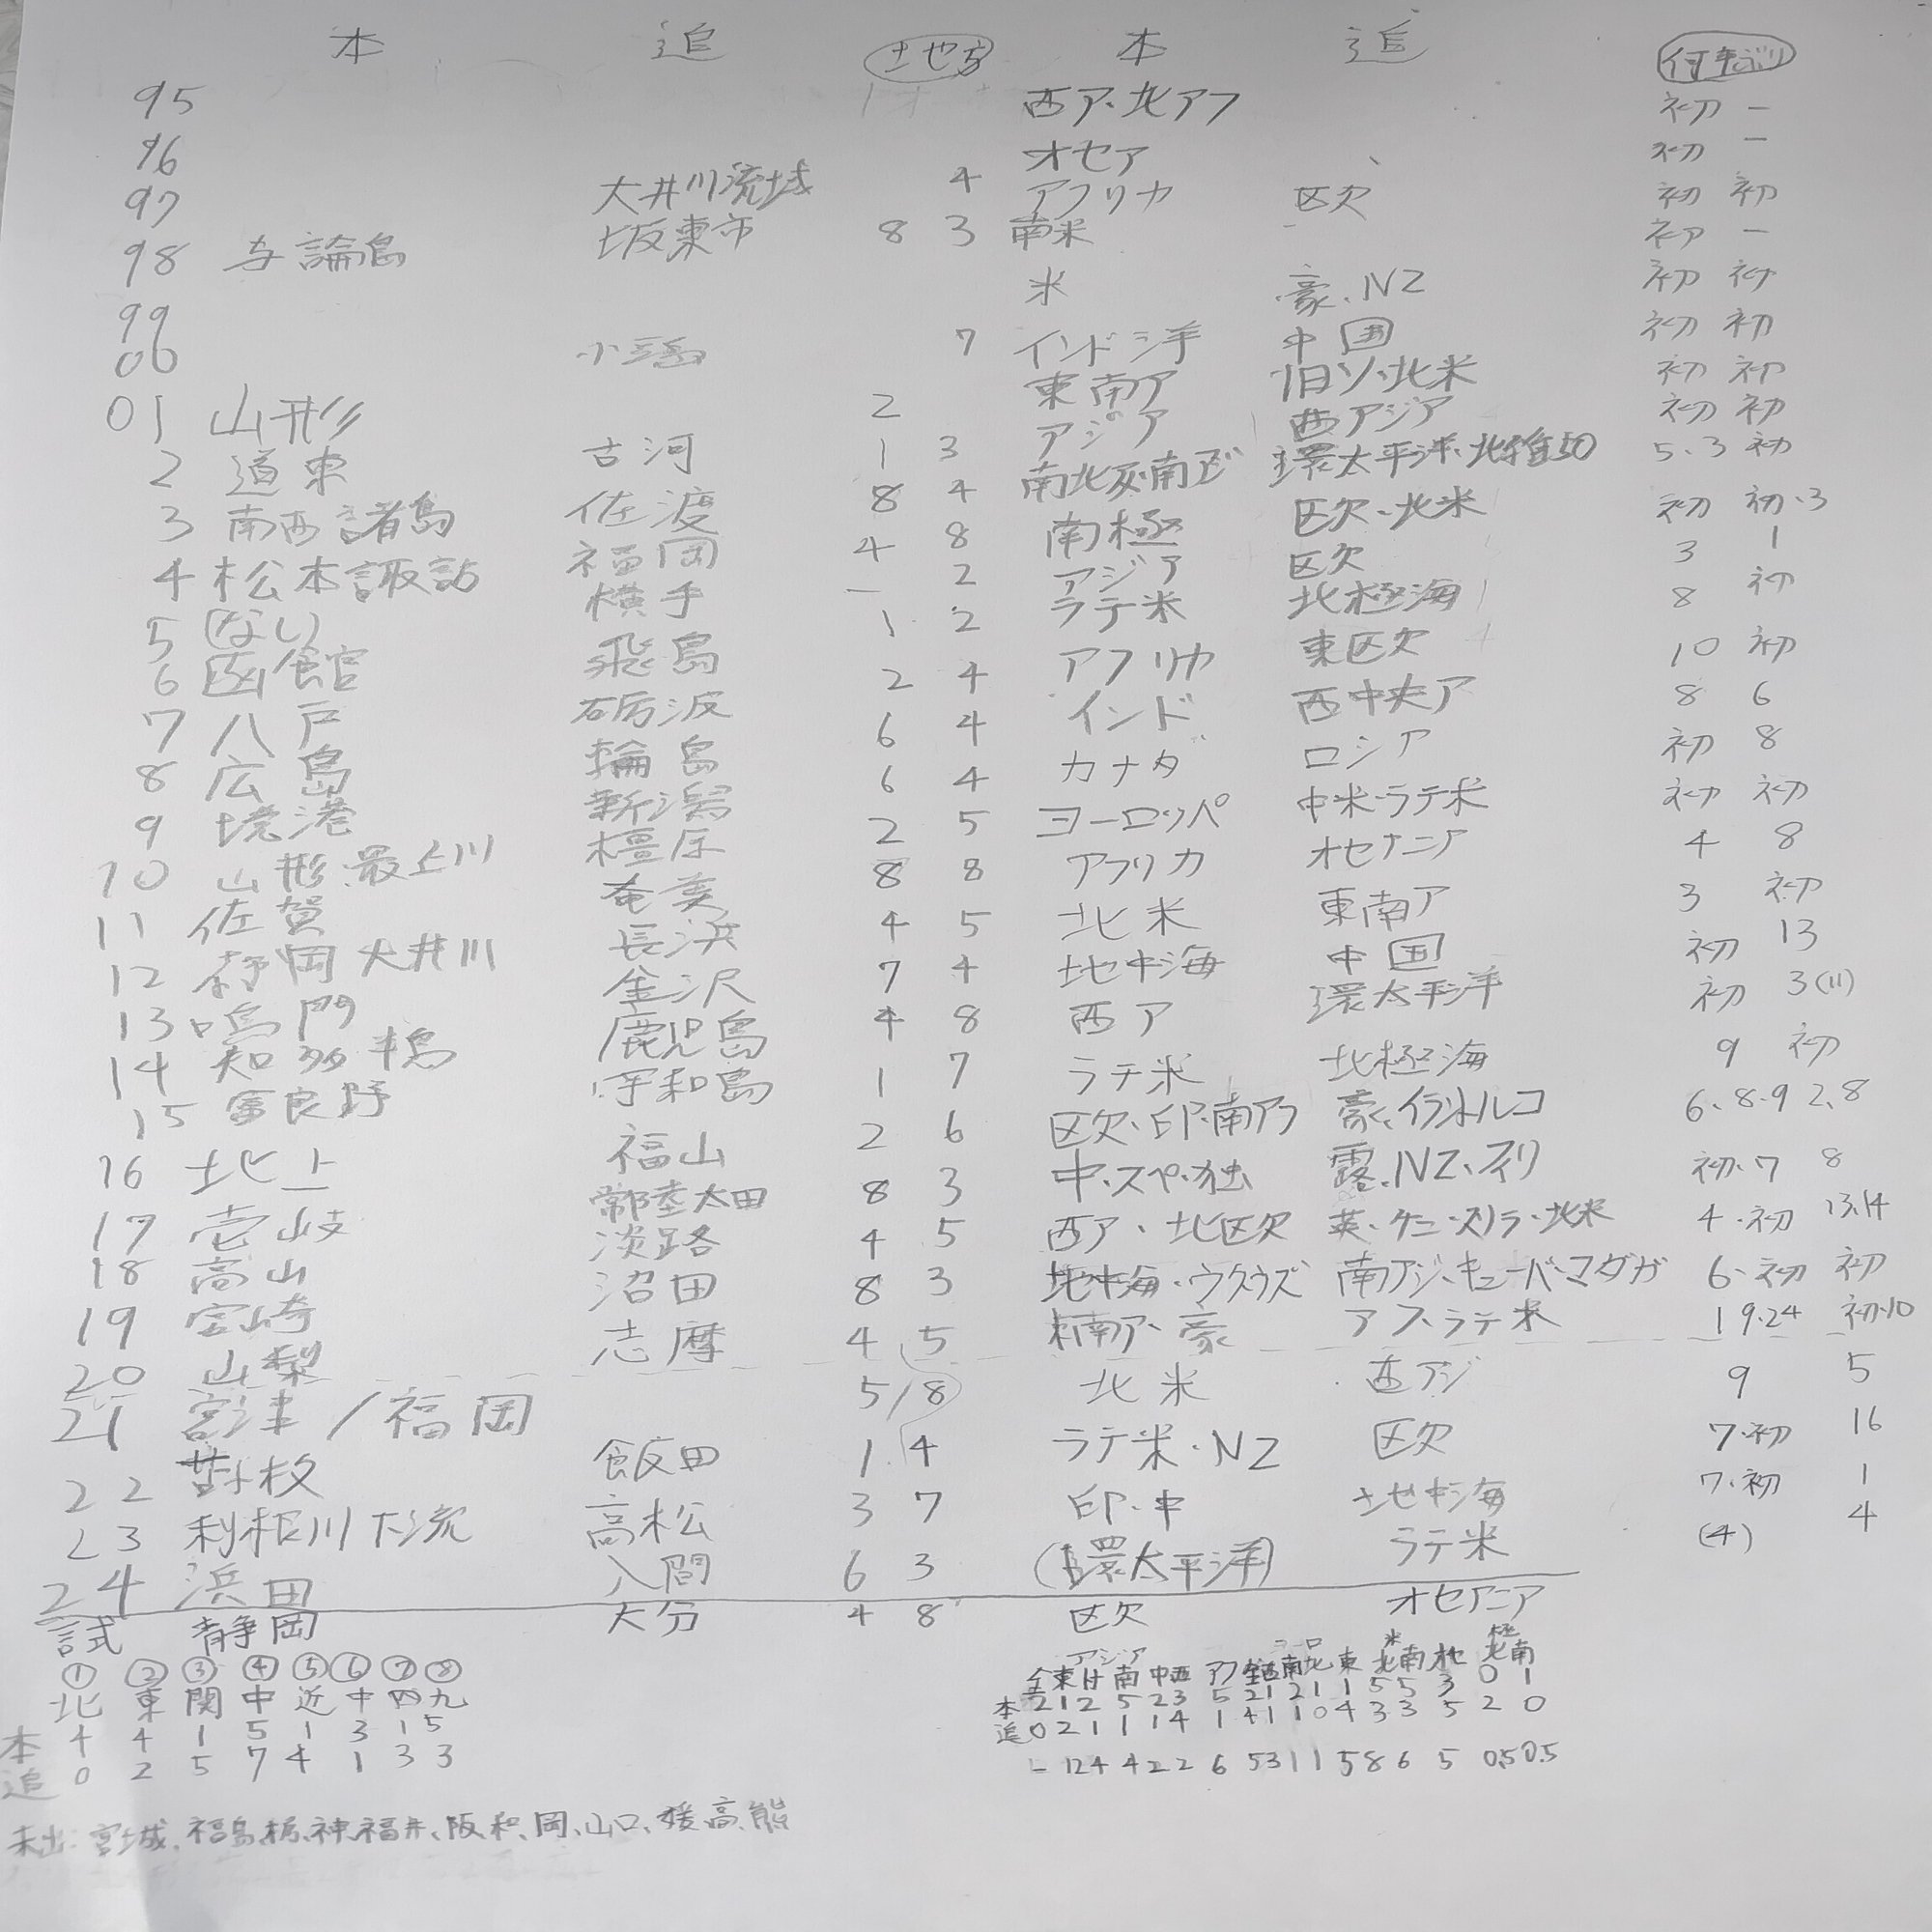 本 追 土地方 本 追 何年ぶり
95 西ア・北アフ 初 ー
96 オセア 初 ー
97 大井川流域 4 アフリカ 区欠 初 初
98 与論島 坂東市 8 3 南米 - 初 ー
99 米 豪、NZ 初 初
00 小 7 インド洋 中国 初 初
01 山形 2 東南ア 旧ソ・北米 初 初
2 道東 古河 1 3 アジア 西アジア 初 初
3 南西諸島 佐渡 8 4 環太平洋・北 5、3 初
4 松本諏訪 福岡 4 8 南極 区欠・北米 初 初・3
5 (なし) 横手 ー 2 アジア 区欠 3 1
6 函館 飛島 1 2 ラテ米 北極海 8 初
7 八戸 砺波 2 4 アフリカ 東区欠 10 初
8 広島 輪島 6 4 インド 西中央ア 8 6
9 境港 新潟 6 4 カナダ ロシア 初 8
10 山形・最上川 橿原 2 5 ヨーロッパ 中米・ラテ米 初 初
11 佐賀 奄美 8 8 アフリカ オセアニア 4 8
12 静岡大井川 長浜 4 5 北米 東南ア 3 初
13 鳴門 金沢 7 4 地中海 中国 初 13
14 知多半島 鹿児島 4 8 西ア 環太平洋 初 3(11)
15 富良野 宇和島 1 7 ラテ米 北極海 9 初
16 北上 福山 2 6 区欠、印、南アフ 6、8・9 2、8
17 壱岐 常陸太田 8 3 中・スペ・独 露、NZ、フィリ 初・7 8
18 高山 淡路 4 5 西ア・北区欠 英・ケニ・スリラ・北米 4・初 13、14
19 宮崎 沼田 8 3 地中海・ウクウズ 南アジ・キューバ・マダガ 6・初 初
20 山梨 志摩 4 5 東南ア・豪 アフ、ラテ米 19・24 初・10
21 宮津/福岡 5/8 北米 西アジ 9 5
22 飯田 1 4 ラテ米・NZ 区欠 7・初 16
23 利根川下流 高松 3 7 印・中 地中海 7・初 1
24 浜田 入間 6 3 (環太平洋) ラテ米 (4) 4
試 静岡 大分 4 8 区欠 オセアニア
① ② ③ ④ ⑤ ⑥ ⑦ ⑧
北 東 関 中 近 中 四 九
本 4 4 1 5 1 3 1 5
追 0 2 5 7 4 1 3 3
アジア 米 極
本 2 1 2 5 2 3 5 2 1 2 1 1 5 5 3 0 1
追 0 2 1 1 1 4 1 4 1 1 0 4 3 3 5 2 0
- 12 4 4 2 2 6 5 3 1 1 5 8 6 5 0.5 0.5
未出:宮城、福島、栃、神、福井、阪、和、岡、山口、媛、高、熊